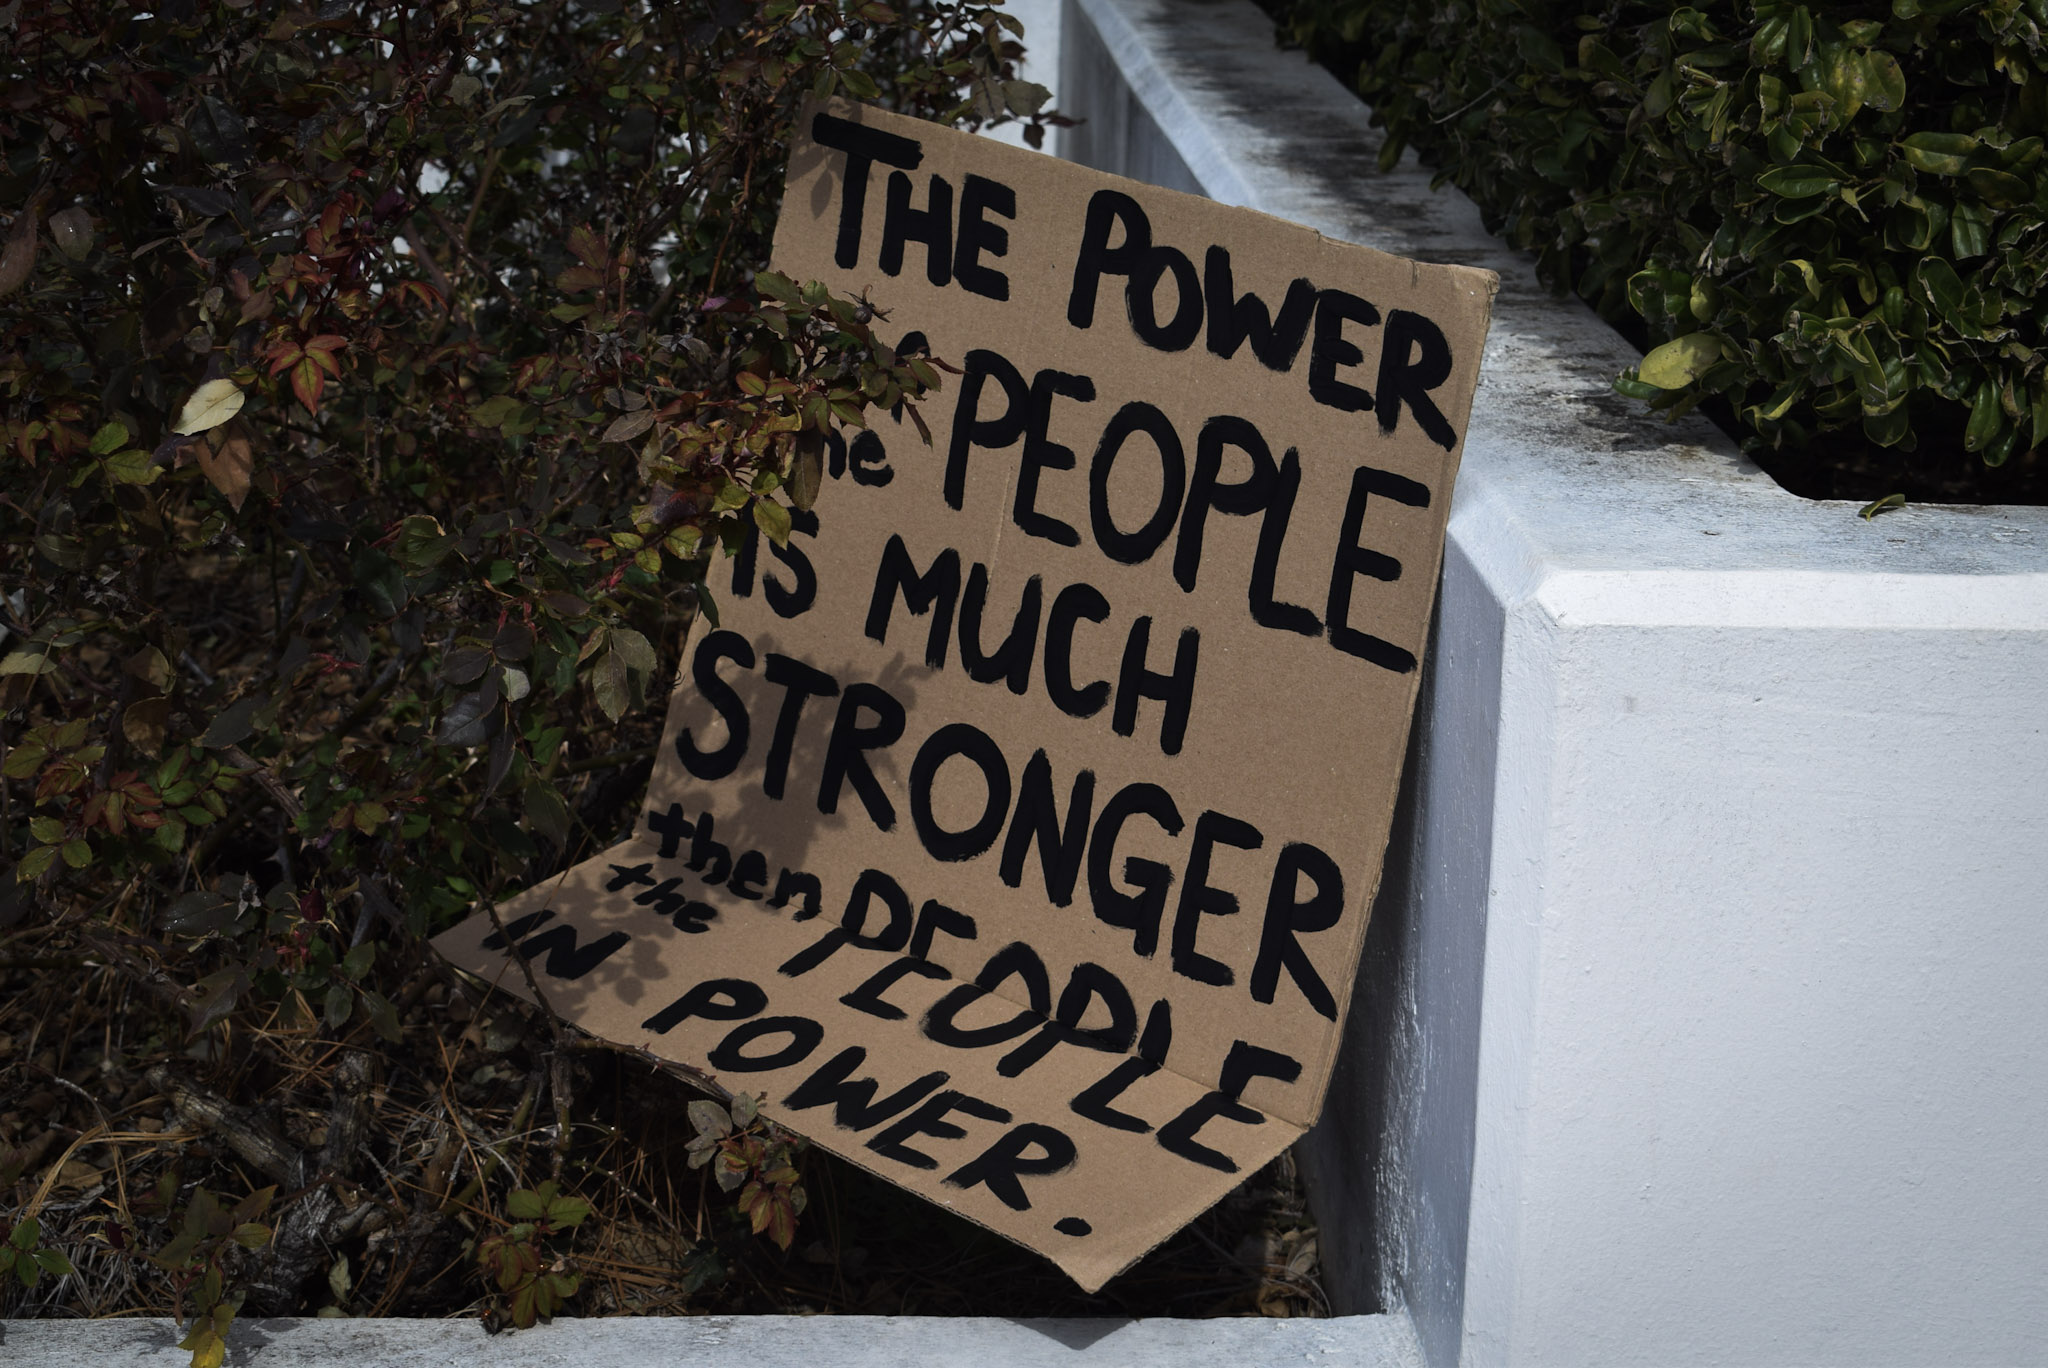 THE POWER
of the PEOPLE
IS MUCH
STRONGER
then the PEOPLE
IN POWER.